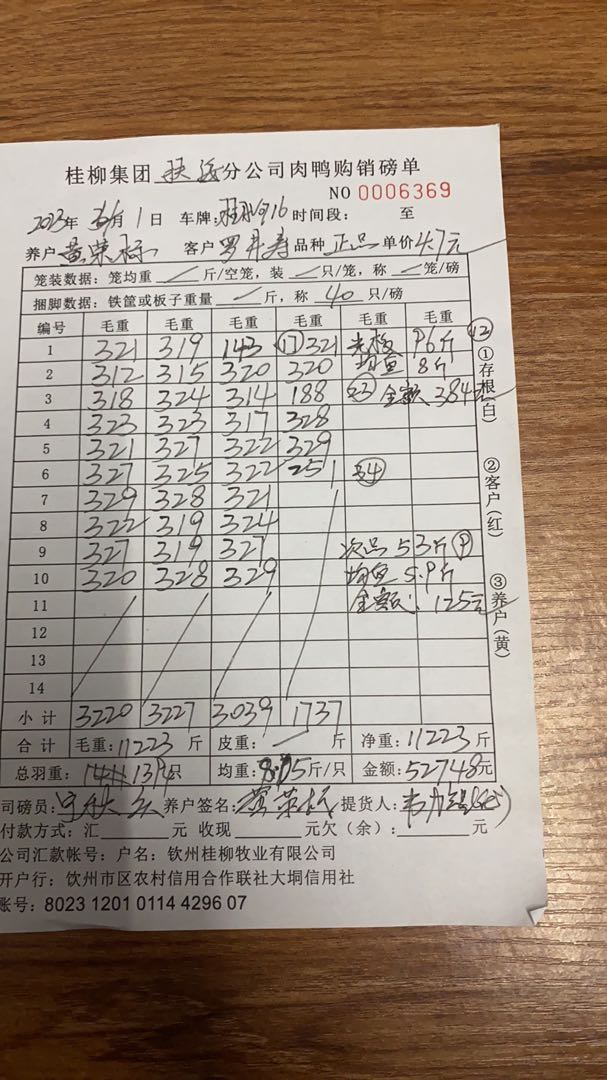 桂柳集团 扶绥 分公司肉鸭购销磅单
NO 0006369
2023年 6月 1日 车牌: 时间段: 至
养户 黄荣标 客户 罗寿 品种 正品 单价 4.7元
笼装数据: 笼均重 斤/空笼, 装 只/笼, 称 笼/磅
捆脚数据: 铁筐或板子重量 斤, 称 40 只/磅
编号 毛重 毛重 毛重 毛重 毛重 毛重
1 321 319 143 ⑰ 321 96斤 ⑫
2 312 315 320 320 均重 8斤
3 318 324 314 188 ㉓ 金额 384元
4 323 323 317 328
5 321 327 322 329
6 327 325 322 251 ㉞
7 329 328 321
8 322 319 324
9 327 319 327 次品 53斤 ⑨
10 320 328 329 均重 5.9斤
11 金额: 125元
12
13
14
小计 3220 3227 3039 1737
合计 毛重: 11223 斤 皮重: 斤 净重: 11223斤
总羽重: 1394只 均重: 8.05斤/只 金额: 52748元
司磅员: 养户签名: 黄荣标 提货人:
付款方式: 汇 元 收现 元欠(余): 元
公司汇款帐号: 户名: 钦州桂柳牧业有限公司
开户行: 钦州市区农村信用合作联社大垌信用社
账号: 8023 1201 0114 4296 07
①存根(白)
②客户(红)
③养户(黄)